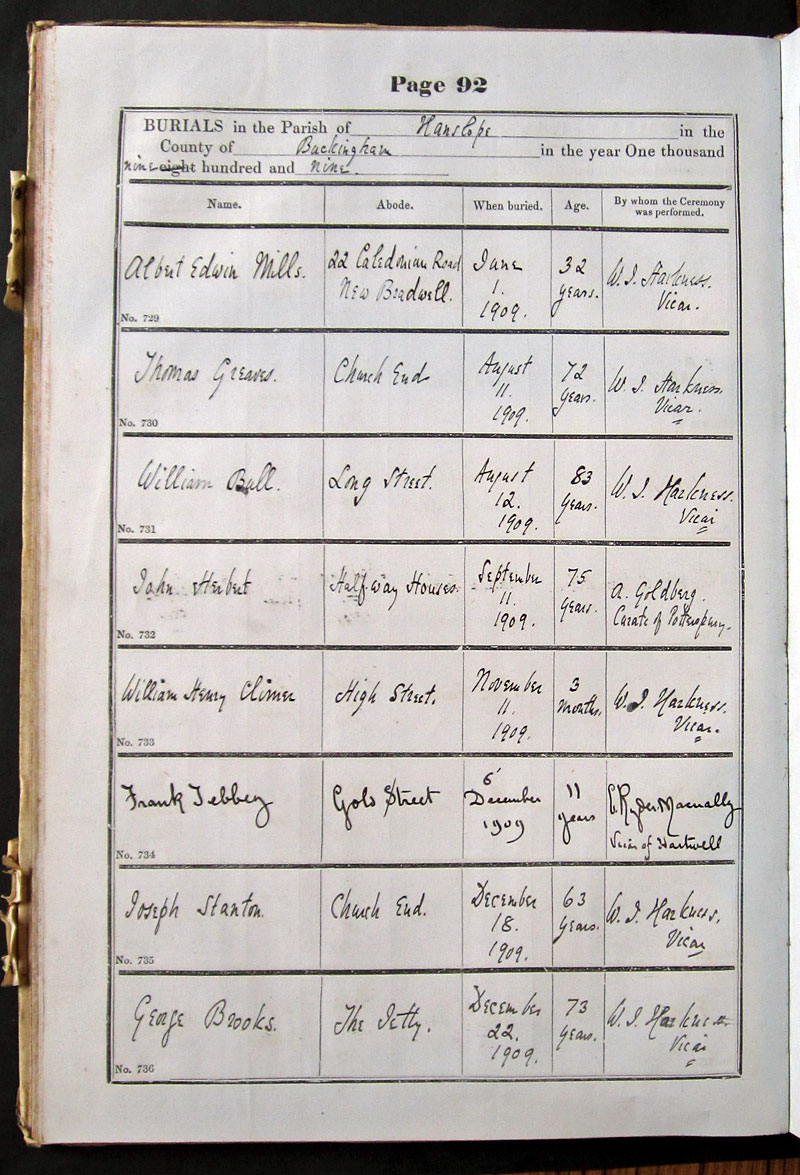 Page 92
BURIALS in the Parish of Hanslope in the
County of Buckingham in the year One thousand
nine eight hundred and nine.
Name. Abode. When buried. Age. By whom the Ceremony was performed.
Albert Edwin Mills.
22 Caledonian Road
New Bradwell.
June
1.
1909.
32
years.
W. J. Harkness.
Vicar.
No. 729
Thomas Greaves.
Church End
August
11.
1909.
72
years.
W. J. Harkness.
Vicar.
No. 730
William Ball.
Long Street.
August
12.
1909.
83
years.
W. J. Harkness.
Vicar
No. 731
John Herbert
Half way Houses.
September
11.
1909.
75
years.
A. Goldberg.
Curate of Potterspury.
No. 732
William Henry Climer
High Street.
November
11.
1909.
3
months.
W. J. Harkness.
Vicar.
No. 733
Frank Tebbey
Gold Street
6
December
1909
11
years
Vicar of Hartwell
No. 734
Joseph Stanton.
Church End.
December
18.
1909.
63
years.
W. J. Harkness.
Vicar
No. 735
George Brooks.
The Jetty.
December
22.
1909.
73
years.
W. J. Harkness
Vicar
No. 736